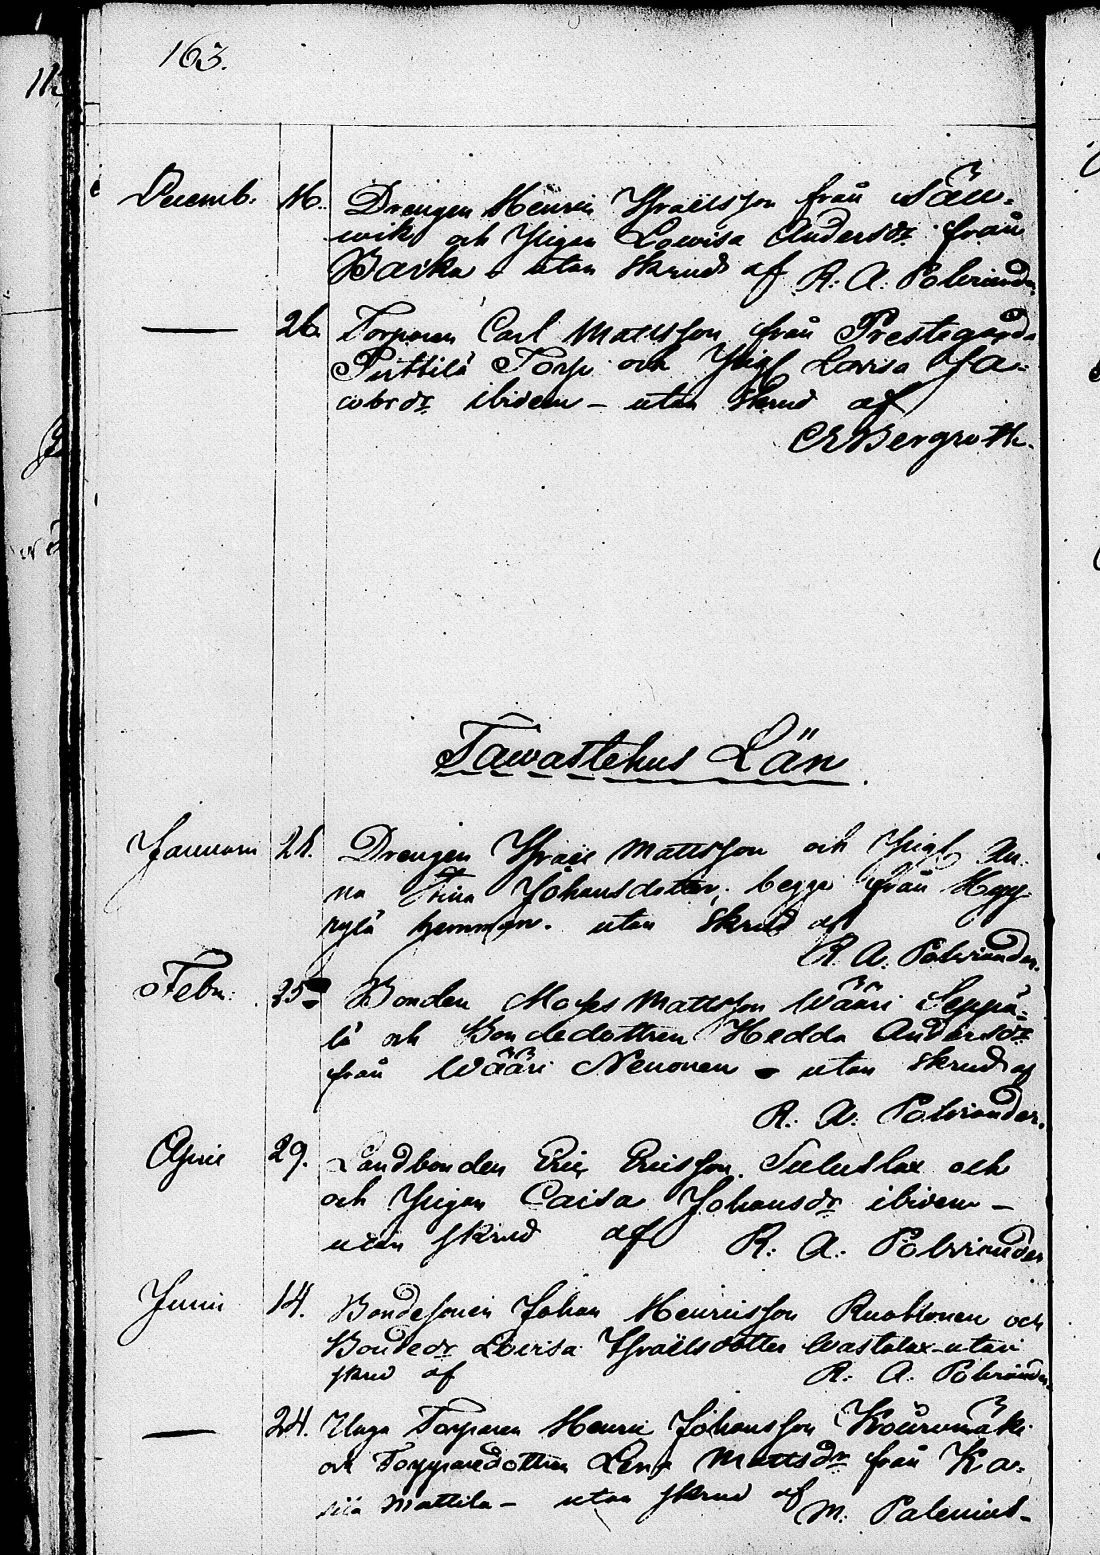 163.
Decemb. 16. Drengen Henric Israelsson från Sää-
wik och Pigan Lowisa Andersdr från
Backa - utan skrud af R. A. Polviander
— 26. Torparen Carl Mattsson från Prestegårds
Perttilä Torp och Pigf Lovisa Ja-
cobsdr ibidem - utan skrud af
CEBergroth.
Tawastehus Län.
Januari 28. Drengen Israel Mattsson och Pigf An-
na Stina Johansdotter, begge från Hey-
rylä hemman. utan skrud af
R. A. Polviander.
Febr. 25 Bonden Moses Mattsson Wääri Seppä-
lä och Bondedottren Hedda Andersdr
från Wääri Nenonen - utan skrud af
R. A. Polviander.
April 29. Landbonden Eric Ericsson och
och Pigan Caisa Johansdr ibidem -
utan skrud af R. A. Polviander
Junii 14. Bondesonen Johan Henricsson Ruokonen och
Bondedr Lovisa Israelsdotter Wastolax utan
skrud af R. A. Polviander
— 24. Unga Torparen Henric Johansson Kouvomäki
och Torparedottren Lena Mattsdr från Ka-
Mattila - utan skrud af M. Palenius -